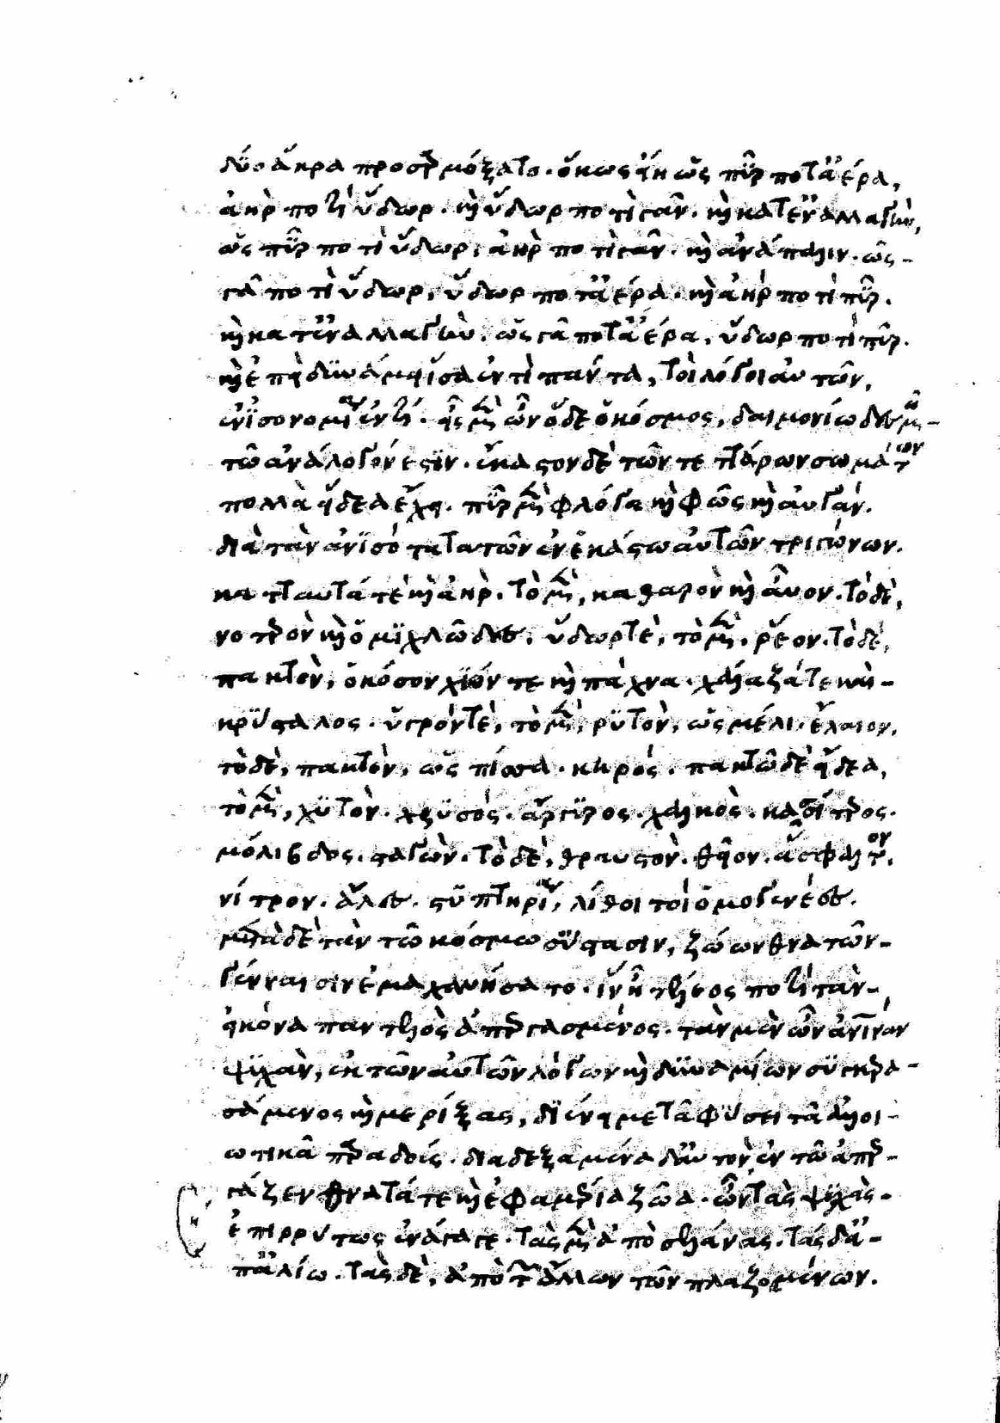 δύο ἄκρα προσαρμόξατο. ὅκως ᾖ ὡς πῦρ ποτ' ἀέρα,
ἀὴρ ποτὶ ὕδωρ. καὶ ὕδωρ ποτὶ γᾶν. καὶ κατ' ἐναλλαγὰν,
ὡς πῦρ ποτὶ ὕδωρ, ἀὴρ ποτὶ γᾶν. καὶ ἀνάπαλιν. ὡς
γᾶ ποτὶ ὕδωρ, ὕδωρ ποτ' ἀέρα. καὶ ἀὴρ ποτὶ πῦρ.
καὶ κατ' ἐναλλαγὰν. ὡς γᾶ ποτ' ἀέρα, ὕδωρ ποτὶ πῦρ.
καὶ ἐπεὶ δυνάμει ἴσα ἐντὶ πάντα, τοὶ λόγοι αὐτῶν,
ἐν ἰσονομίᾳ ἐντί. εἷς μὲν ὦν ὅδε ὁ κόσμος, δαιμονίω δεσμῶ
τῶ ἀνάλογόν ἐστιν. ἕκαστον δὲ τῶν τεττάρων σωμάτων
πολλὰ εἴδεα ἔχει. πῦρ μὲν φλόγα καὶ φῶς καὶ αὐγάν.
διὰ τὰν ἀνισότατα τῶν ἐν ἑκάστω αὐτῶν τριγώνων.
κατταυτά τε καὶ ἀὴρ. τὸ μὲν, καθαρὸν καὶ αὖον. τὸ δὲ,
νοτερὸν καὶ ὁμιχλῶδες. ὕδωρ τὲ, τὸ μὲν, ῥέον. τὸ δὲ,
πακτὸν, ὁκόσον χιόν τε καὶ πάχνα. χάλαζά τε καὶ
κρύσταλος. ὑγρόν τὲ, τὸ μὲν, ῥυτὸν, ὡς μέλι. ἔλαιον.
τὸ δὲ, πακτὸν, ὡς πίσσα. κηρός. πακτῶ δὲ εἴδεα,
τὸ μὲν, χυτὸν. χρυσός. ἄργυρος. χαλκὸς. κασσίτερος.
μόλιβδος. σταγὼν. τὸ δὲ, θραυστὸν. θεῖον. ἄσφαλτον.
νίτρον. ἅλες. στυπτηρία, λίθοι τοὶ ὁμογενέες.
μετὰ δὲ τὰν τῶ κόσμω σύστασιν, ζώων θνατῶν
γένναισιν ἐμαχανήσατο. ἵν' ᾖ τέλεος ποτὶ τὰν
εἰκόνα παντελῶς ἀπειργασμένος. τὰν μὲν ὦν ἀνθρωπίναν
ψυχὰν, ἐκ τῶν αὐτῶν λόγων καὶ δυναμίων συγκερα-
σάμενος καὶ μερίξας, διένειμε τᾶ φύσει τᾶ ἀλλοι-
ωτικᾶ παραδούς. διαδεξαμένα δ' αὐτὸν ἐν τῶ ἀπερ-
γάζεν θνατά τε καὶ ἐφαμέρια ζῶα. ὧν τὰς ψυχὰς
ἐπιρρύτως ἐνάγαγε. τὰς μὲν ἀπὸ σελάνας. τὰς δ' ἀ-
π' ἀλίω. τὰς δὲ, ἀπὸ τῶν ἄλλων τῶν πλαζομένων.